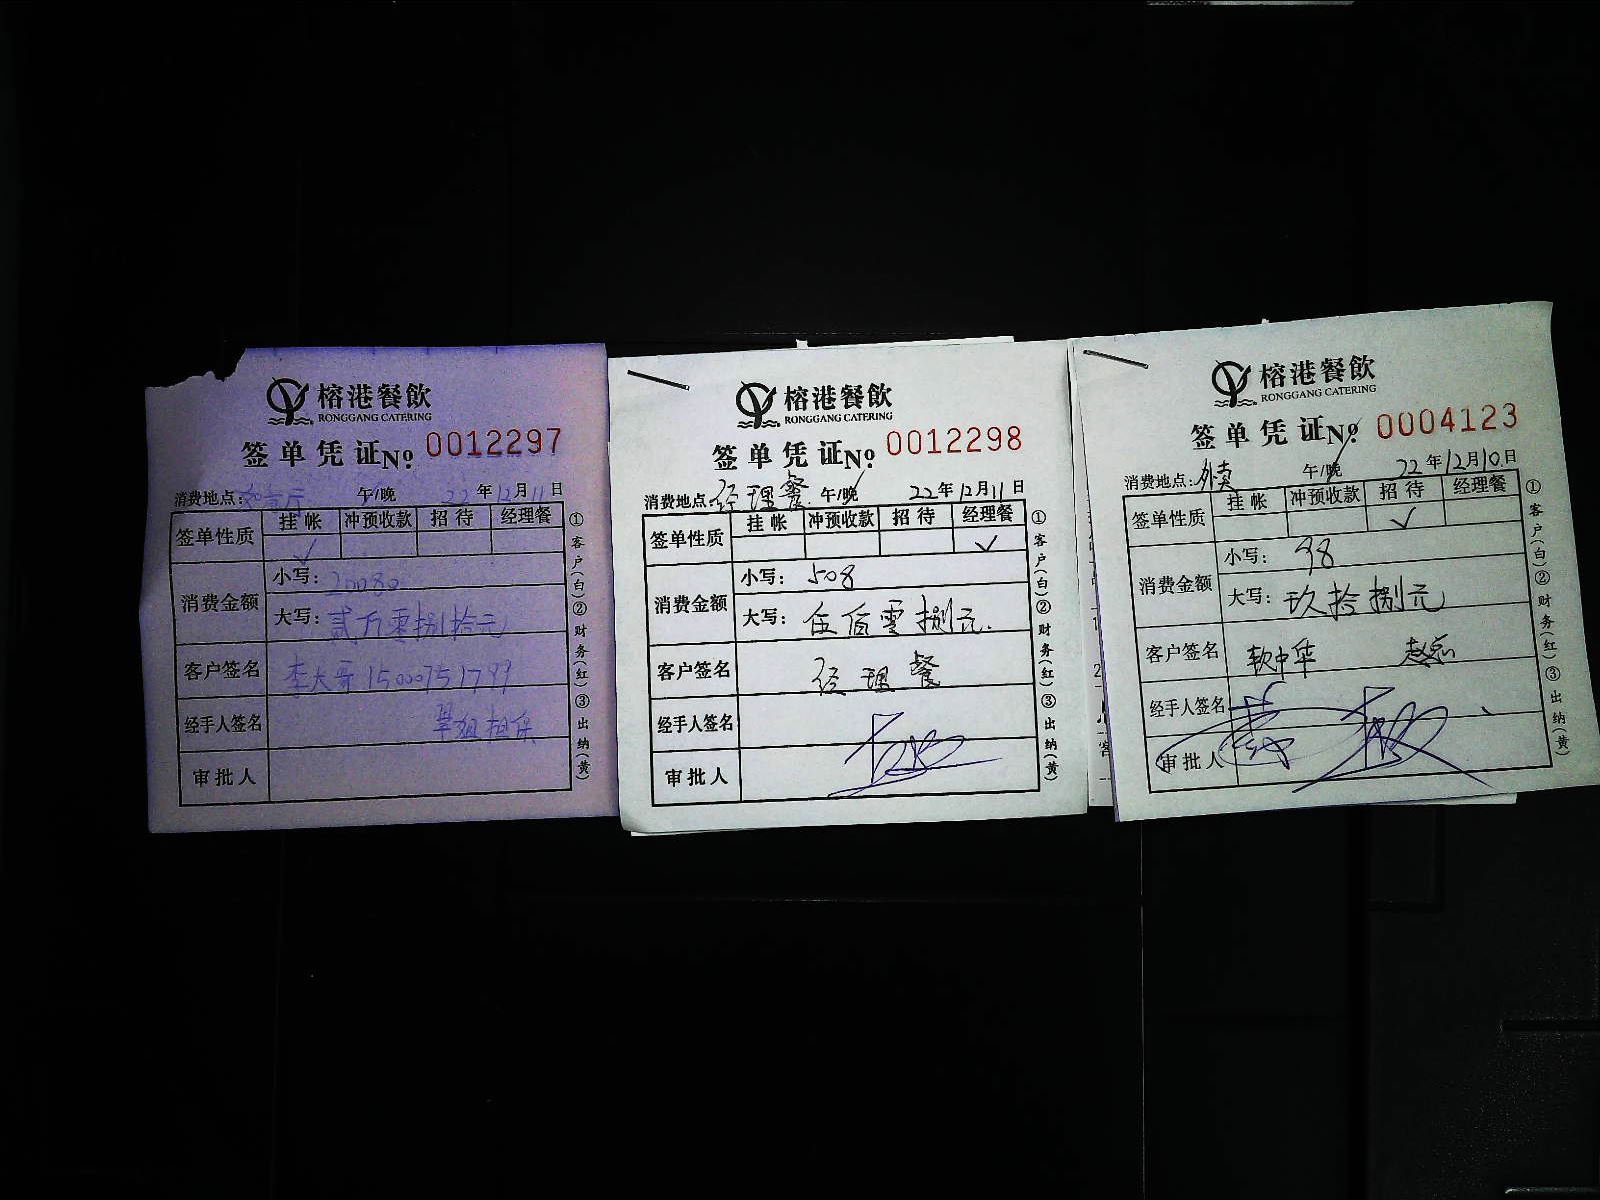 榕港餐飲
RONGGANG CATERING
签单凭证No 0012297
消费地点: 午/晚 22年12月11日
签单性质 挂帐 冲预收款 招待 经理餐
✓
消费金额 小写: 20080
大写: 贰万零捌拾元
客户签名 李大哥
经手人签名 担保
审批人
①客户(白)②财务(红)③出纳(黄)
榕港餐飲
RONGGANG CATERING
签单凭证No 0012298
消费地点: 经理餐 午/晚 22年12月11日
签单性质 挂帐 冲预收款 招待 经理餐
✓
消费金额 小写: 508
大写: 伍佰零捌元.
客户签名 经理餐
经手人签名
审批人
①客户(白)②财务(红)③出纳(黄)
榕港餐飲
RONGGANG CATERING
签单凭证No 0004123
消费地点: 外卖 午/晚 22年12月10日
签单性质 挂帐 冲预收款 招待 经理餐
✓
消费金额 小写: 98
大写: 玖拾捌元
客户签名 软中华
经手人签名
审批人
①客户(白)②财务(红)③出纳(黄)